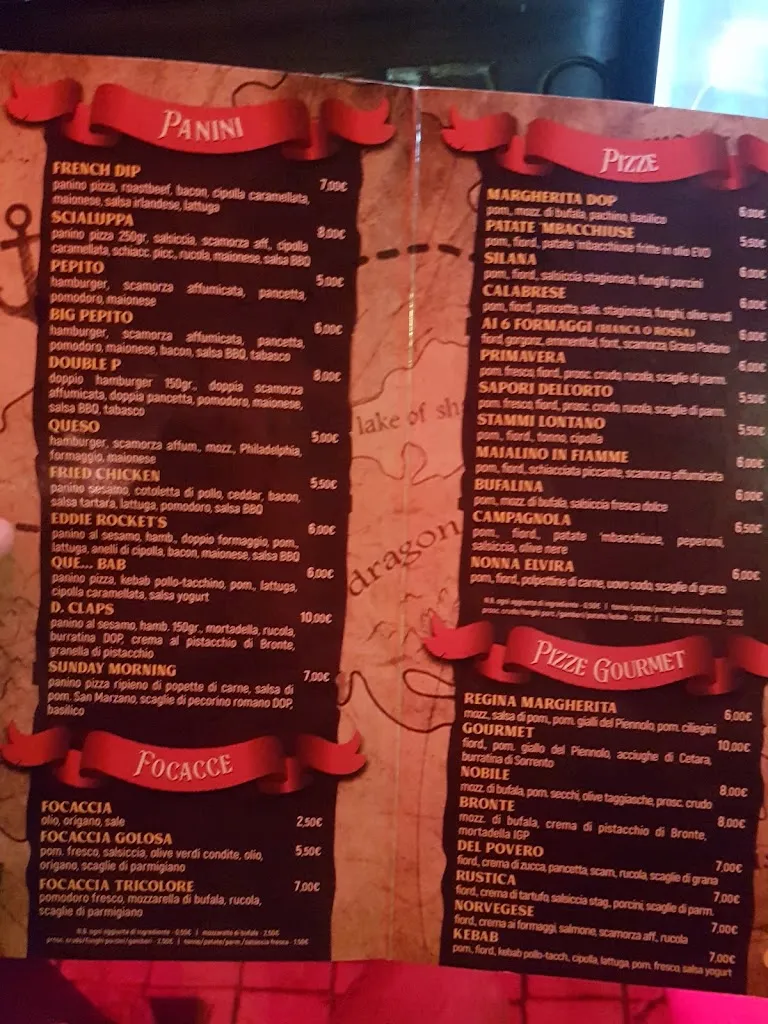 PANINI
FRENCH DIP
panino pizza, roastbeef, bacon, cipolla caramellata, 7,00€
maionese, salsa irlandese, lattuga
SCIALUPPA
panino pizza 250gr, salsiccia, scamorza aff., cipolla 8,00€
caramellata, schiacc. picc., rucola, maionese, salsa BBQ
PEPITO
hamburger, scamorza affumicata, pancetta, 5,00€
pomodoro, maionese
BIG PEPITO
hamburger, scamorza affumicata, pancetta, 6,00€
pomodoro, maionese, bacon, salsa BBQ, tabasco
DOUBLE P
doppio hamburger 150gr., doppia scamorza 8,00€
affumicata, doppia pancetta, pomodoro, maionese,
salsa BBQ, tabasco
QUESO
hamburger, scamorza affum., mozz., Philadelphia, 5,00€
formaggio, maionese
FRIED CHICKEN
panino sesamo, cotoletta di pollo, ceddar, bacon, 5,50€
salsa tartara, lattuga, pomodoro, salsa BBQ
EDDIE ROCKET'S
panino al sesamo, hamb., doppio formaggio, pom., 6,00€
lattuga, anelli di cipolla, bacon, maionese, salsa BBQ
QUE... BAB
panino pizza, kebab pollo-tacchino, pom., lattuga, 6,00€
cipolla caramellata, salsa yogurt
D. CLAPS
panino al sesamo, hamb. 150gr., mortadella, rucola, 10,00€
burratina DOP, crema al pistacchio di Bronte,
granella di pistacchio
SUNDAY MORNING
panino pizza ripieno di popette di carne, salsa di 7,00€
pom. San Marzano, scaglie di pecorino romano DOP,
basilico
FOCACCE
FOCACCIA
olio, origano, sale 2,50€
FOCACCIA GOLOSA
pom. fresco, salsiccia, olive verdi condite, olio, 5,50€
origano, scaglie di parmigiano
FOCACCIA TRICOLORE 7,00€
pomodoro fresco, mozzarella di bufala, rucola,
scaglie di parmigiano
N.B. ogni aggiunta di ingrediente - 0,50€ | mozzarella di bufala - 2,50€
prosc. crudo/funghi porcini/gamberi - 2,50€ | tonno/patate/parm./salsiccia fresca - 1,50€
lake of sh
dragon
PIZZE
MARGHERITA DOP
pom., mozz. di bufala, pachino, basilico 6,00€
PATATE 'MBACCHIUSE
pom., fiord., patate 'mbacchiuse fritte in olio EVO 5,50€
SILANA
pom., fiord., salsiccia stagionata, funghi porcini 6,00€
CALABRESE
pom., fiord., pancetta, sals. stagionata, funghi, olive verdi 6,00€
AI 6 FORMAGGI (BIANCA O ROSSA)
fiord., gorgonz., emmenthal, font., scamorza, Grana Padano 6,00€
PRIMAVERA
pom. fresco, fiord., prosc. crudo, rucola, scaglie di parm. 6,00€
SAPORI DELL'ORTO
pom. fresco, fiord., prosc. crudo, rucola, scaglie di parm. 5,50€
STAMMI LONTANO
pom., fiord., tonno, cipolla 5,50€
MAIALINO IN FIAMME
pom., fiord., schiacciata piccante, scamorza affumicata 6,00€
BUFALINA
pom., mozz. di bufala, salsiccia fresca dolce 6,00€
CAMPAGNOLA
pom., fiord., patate 'mbacchiuse, peperoni, 6,50€
salsiccia, olive nere
NONNA ELVIRA
pom., fiord., polpettine di carne, uovo sodo, scaglie di grana 6,00€
N.B. ogni aggiunta di ingrediente - 0,50€ | tonno/patate/parm./salsiccia fresca - 1,50€
prosc. crudo/funghi porc./gamberi/panna/kebab - 2,50€ | mozzarella di bufala - 2,50€
PIZZE GOURMET
REGINA MARGHERITA
mozz., salsa di pom., pom. gialli del Piennolo, pom. ciliegini 6,00€
GOURMET
fiord., pom. giallo del Piennolo, acciughe di Cetara, 10,00€
burratina di Sorrento
NOBILE
mozz. di bufala, pom. secchi, olive taggiasche, prosc. crudo 8,00€
BRONTE
mozz. di bufala, crema di pistacchio di Bronte, 8,00€
mortadella IGP
DEL POVERO
fiord., crema di zucca, pancetta, scam., rucola, scaglie di grana 7,00€
RUSTICA
fiord., crema di tartufo, salsiccia stag., porcini, scaglie di parm. 7,00€
NORVEGESE
fiord., crema ai formaggi, salmone, scamorza aff., rucola 7,00€
KEBAB
pom., fiord., kebab pollo-tacch., cipolla, lattuga, pom. fresco, salsa yogurt 7,00€